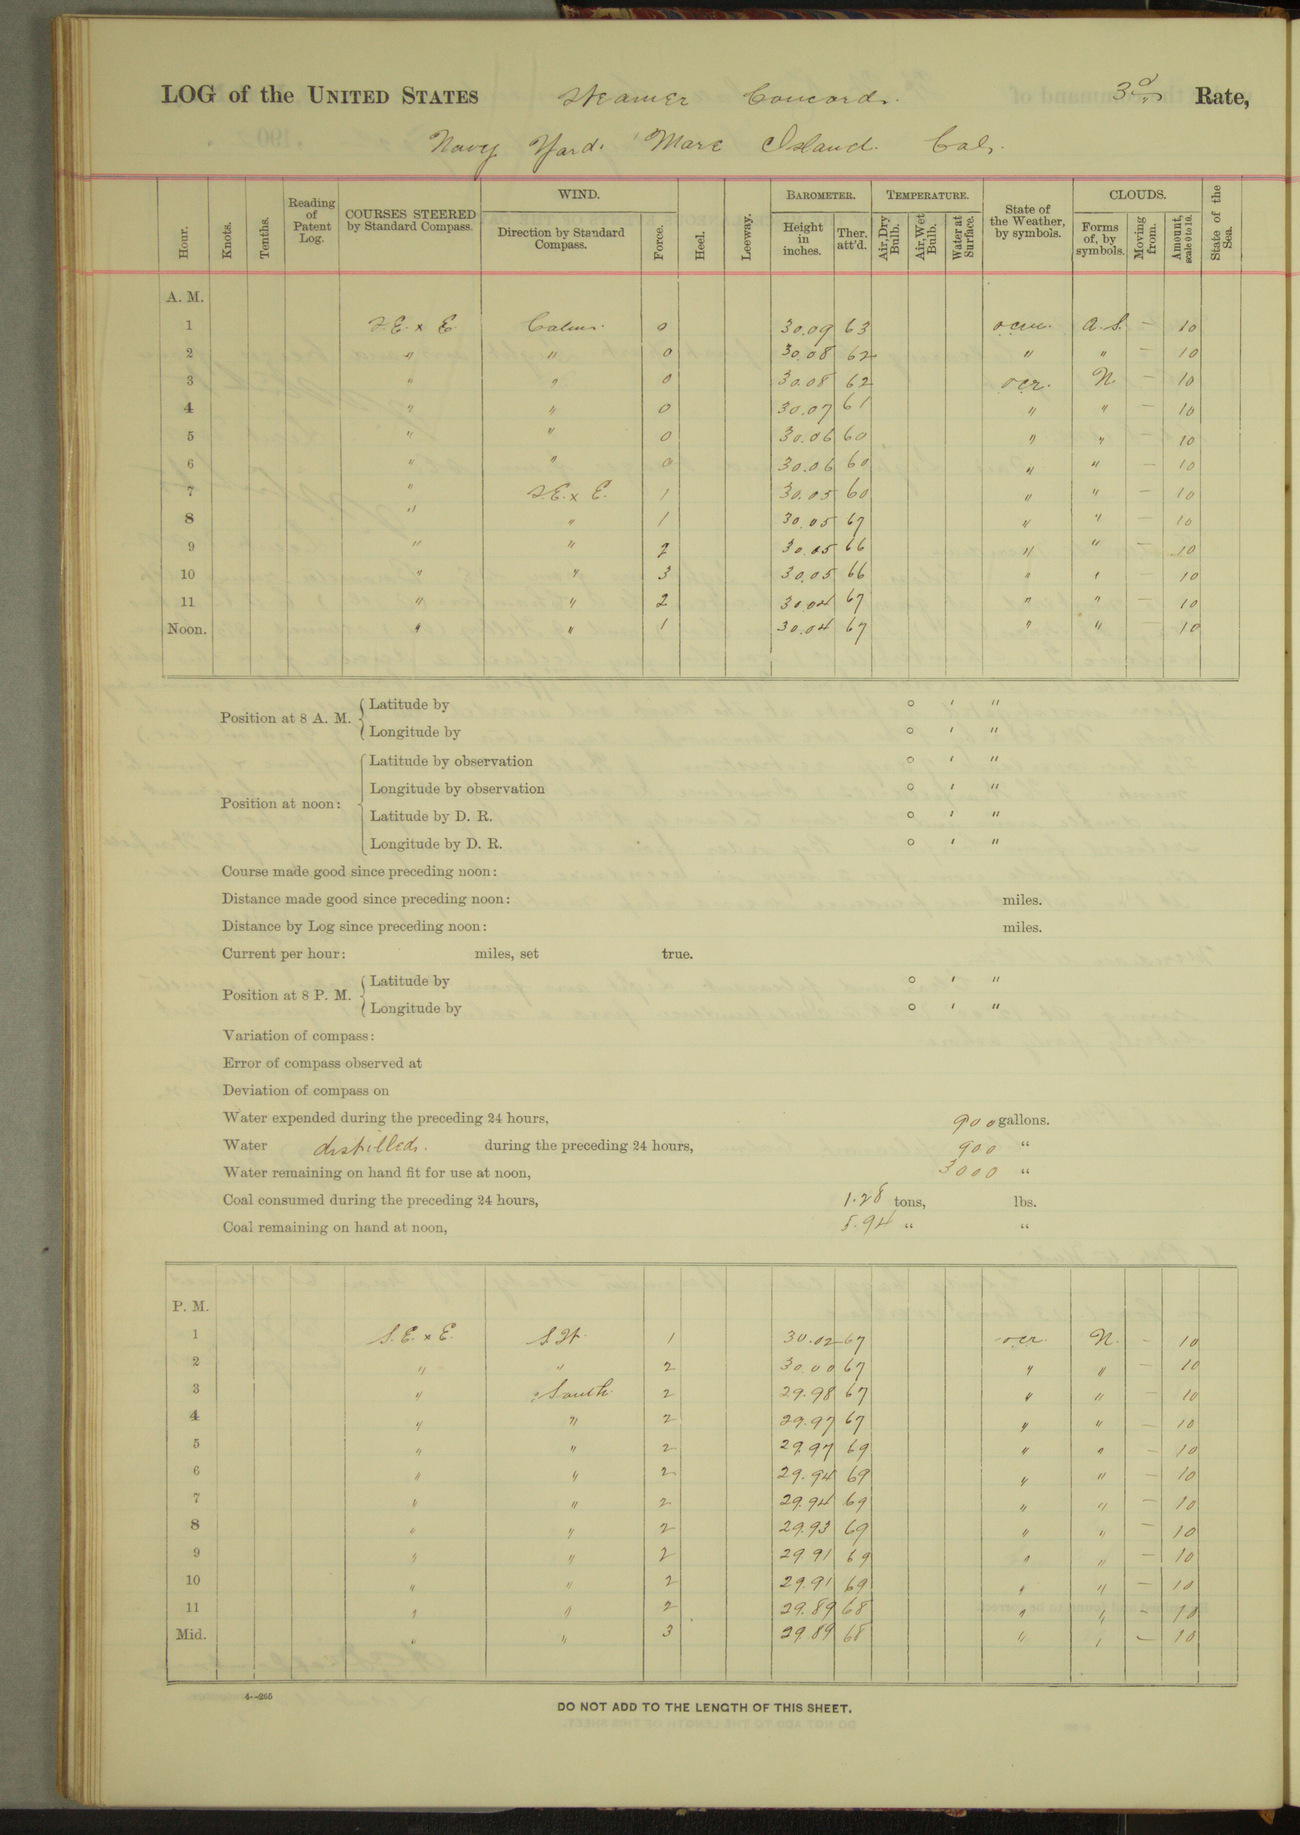 LOG of the UNITED STATES Steamer Concord. 3d Rate,
Navy Yard. Mare Island. Cal.
Hour. Knots. Tenths. Reading of Patent Log. COURSES STEERED by Standard Compass. WIND. Direction by Standard Compass. Force. Heel. Leeway. BAROMETER. Height in inches. Ther. att'd. TEMPERATURE. Air, Dry Bulb. Air, Wet Bulb. Water at Surface. State of the Weather, by symbols. CLOUDS. Forms of, by symbols. Moving from. Amount, scale 0 to 10. State of the Sea.
A. M.
1 S.E. x E. Calm. 0 30.09 63 a.S. — 10
2 " " 0 30.08 62 " " — 10
3 " " 0 30.08 62 ocr. N. — 10
4 " " 0 30.07 61 " " — 10
5 " " 0 30.06 60 " " — 10
6 " " 0 30.06 60 " " — 10
7 " S.E. x E. 1 30.05 60 " " — 10
8 " " 1 30.05 67 " " — 10
9 " " 2 30.05 66 " " — 10
10 " " 3 30.05 66 " " — 10
11 " " 2 30.04 67 " " — 10
Noon. " " 1 30.04 67 " " — 10
Position at 8 A. M. Latitude by ° ' "
Longitude by ° ' "
Position at noon: Latitude by observation ° ' "
Longitude by observation ° ' "
Latitude by D. R. ° ' "
Longitude by D. R. ° ' "
Course made good since preceding noon:
Distance made good since preceding noon: miles.
Distance by Log since preceding noon: miles.
Current per hour: miles, set true.
Position at 8 P. M. Latitude by ° ' "
Longitude by ° ' "
Variation of compass:
Error of compass observed at
Deviation of compass on
Water expended during the preceding 24 hours, 900 gallons.
Water distilled. during the preceding 24 hours, 900 "
Water remaining on hand fit for use at noon, 3000 "
Coal consumed during the preceding 24 hours, 1.28 tons, lbs.
Coal remaining on hand at noon, 5.94 " "
P. M.
1 S.E. x E. 1 30.02 67 ocr. N. - 10
2 " " 2 30.00 67 " " — 10
3 " South 2 29.98 67 " " — 10
4 " " 2 29.97 67 " " — 10
5 " " 2 29.97 69 " " — 10
6 " " 2 29.94 69 " " — 10
7 " " 2 29.94 69 " " — 10
8 " " 2 29.93 69 " " — 10
9 " " 2 29 91 69 " " — 10
10 " " 2 29.91 69 " " — 10
11 " " 2 29.89 68 " " — 10
Mid. " " 3 29 89 68 " " — 10
4—265
DO NOT ADD TO THE LENGTH OF THIS SHEET.